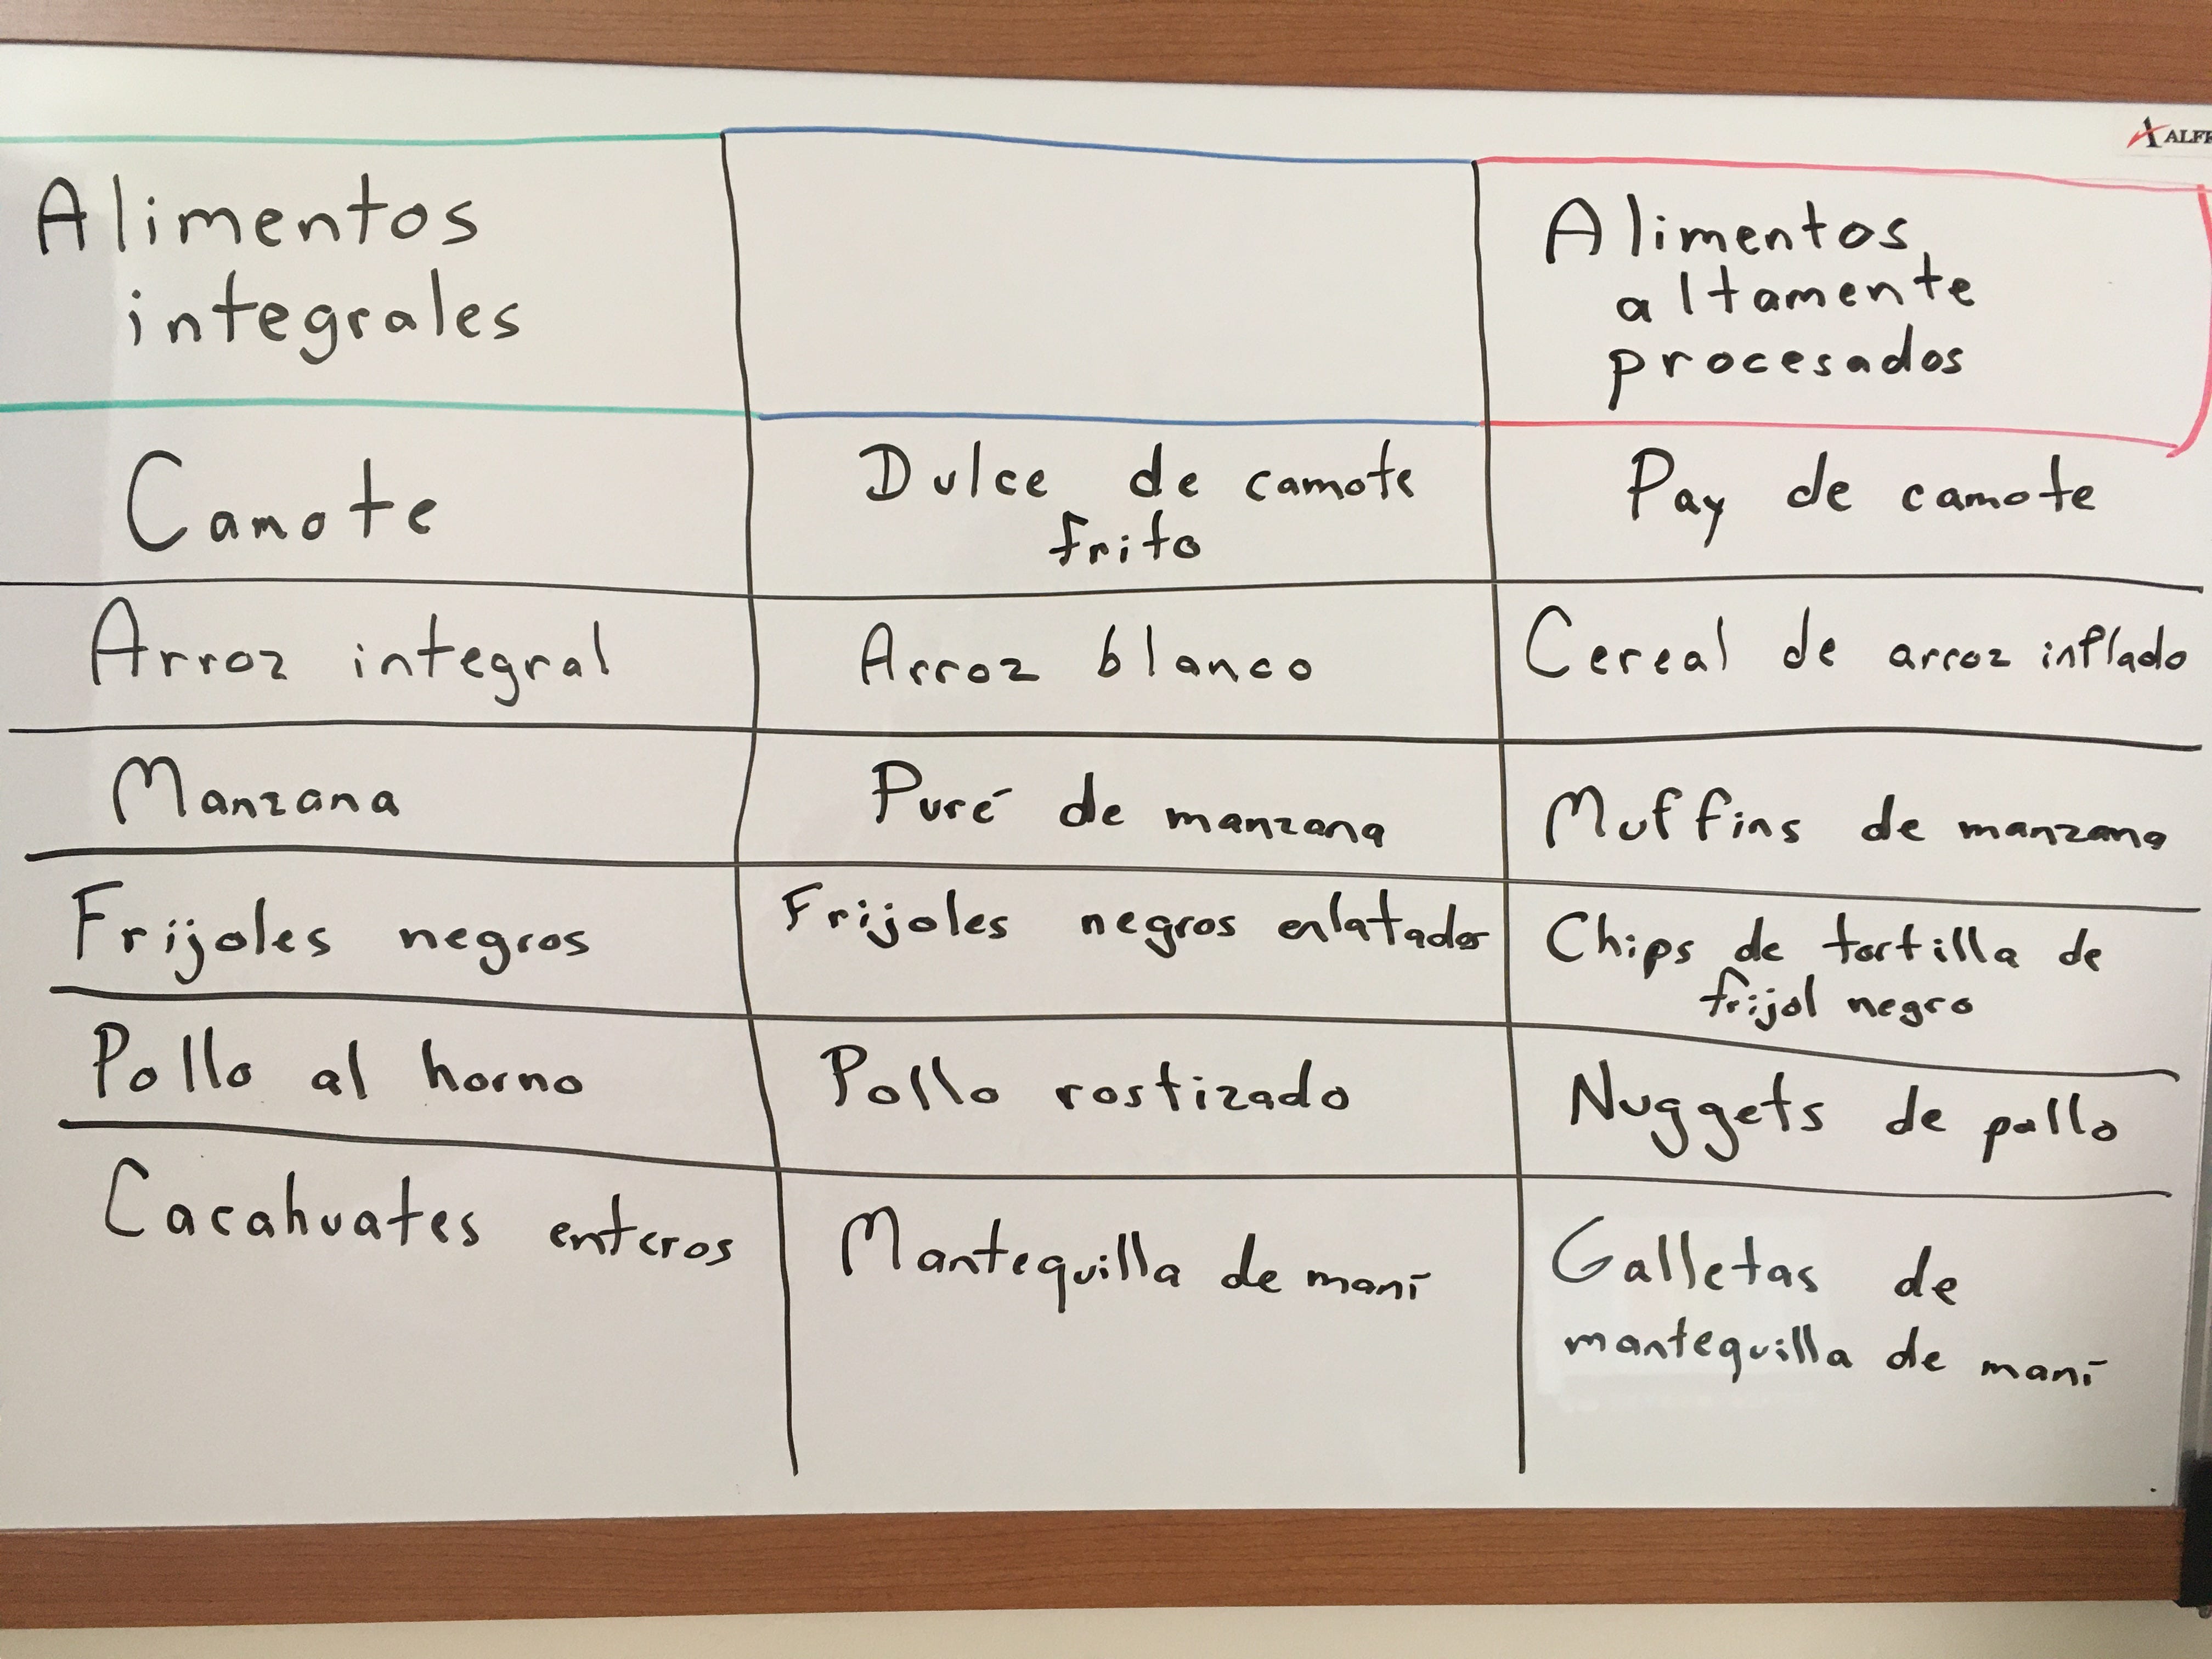 ALFR
Alimentos
integrales
Alimentos
altamente
procesados
Camote
Dulce de camote
frito
Pay de camote
Arroz integral
Arroz blanco
Cereal de arroz inflado
Manzana
Puré de manzana
Muffins de manzana
Frijoles negros
Frijoles negros enlatados
Chips de tortilla de
frijol negro
Pollo al horno
Pollo rostizado
Nuggets de pollo
Cacahuates enteros
Mantequilla de maní
Galletas de
mantequilla de maní